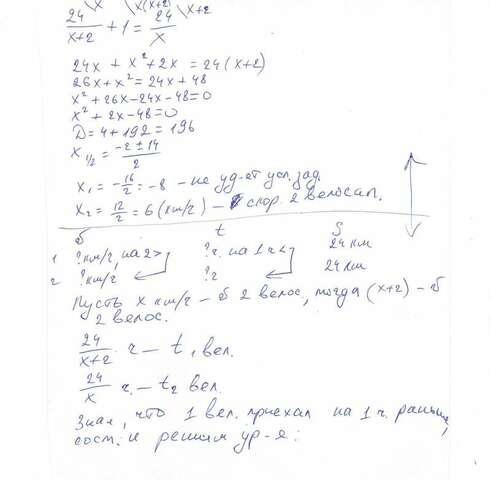 24/(x+2) \x + 1 \x(x+2) = 24/x \x+2
24x + x² + 2x = 24(x+2)
26x + x² = 24x + 48
x² + 26x - 24x - 48 = 0
x² + 2x - 48 = 0
D = 4 + 192 = 196
x₁/₂ = (-2 ± 14)/2
x₁ = -16/2 = -8 - не уд-ет усл. зад.
x₂ = 12/2 = 6 (км/ч) - скор. 2 велосип.
t S
1 ? км/ч, на 2 > ? ч. на 1 ч < 24 км
2 ? км/ч ? ч 24 км
Пусть x км/ч - 2 велос., тогда (x+2) -
2 велос.
24/(x+2) ч - t₁ вел.
24/x ч. - t₂ вел.
Зная, что 1 вел. приехал на 1 ч. раньше,
сост. и решим ур-я: